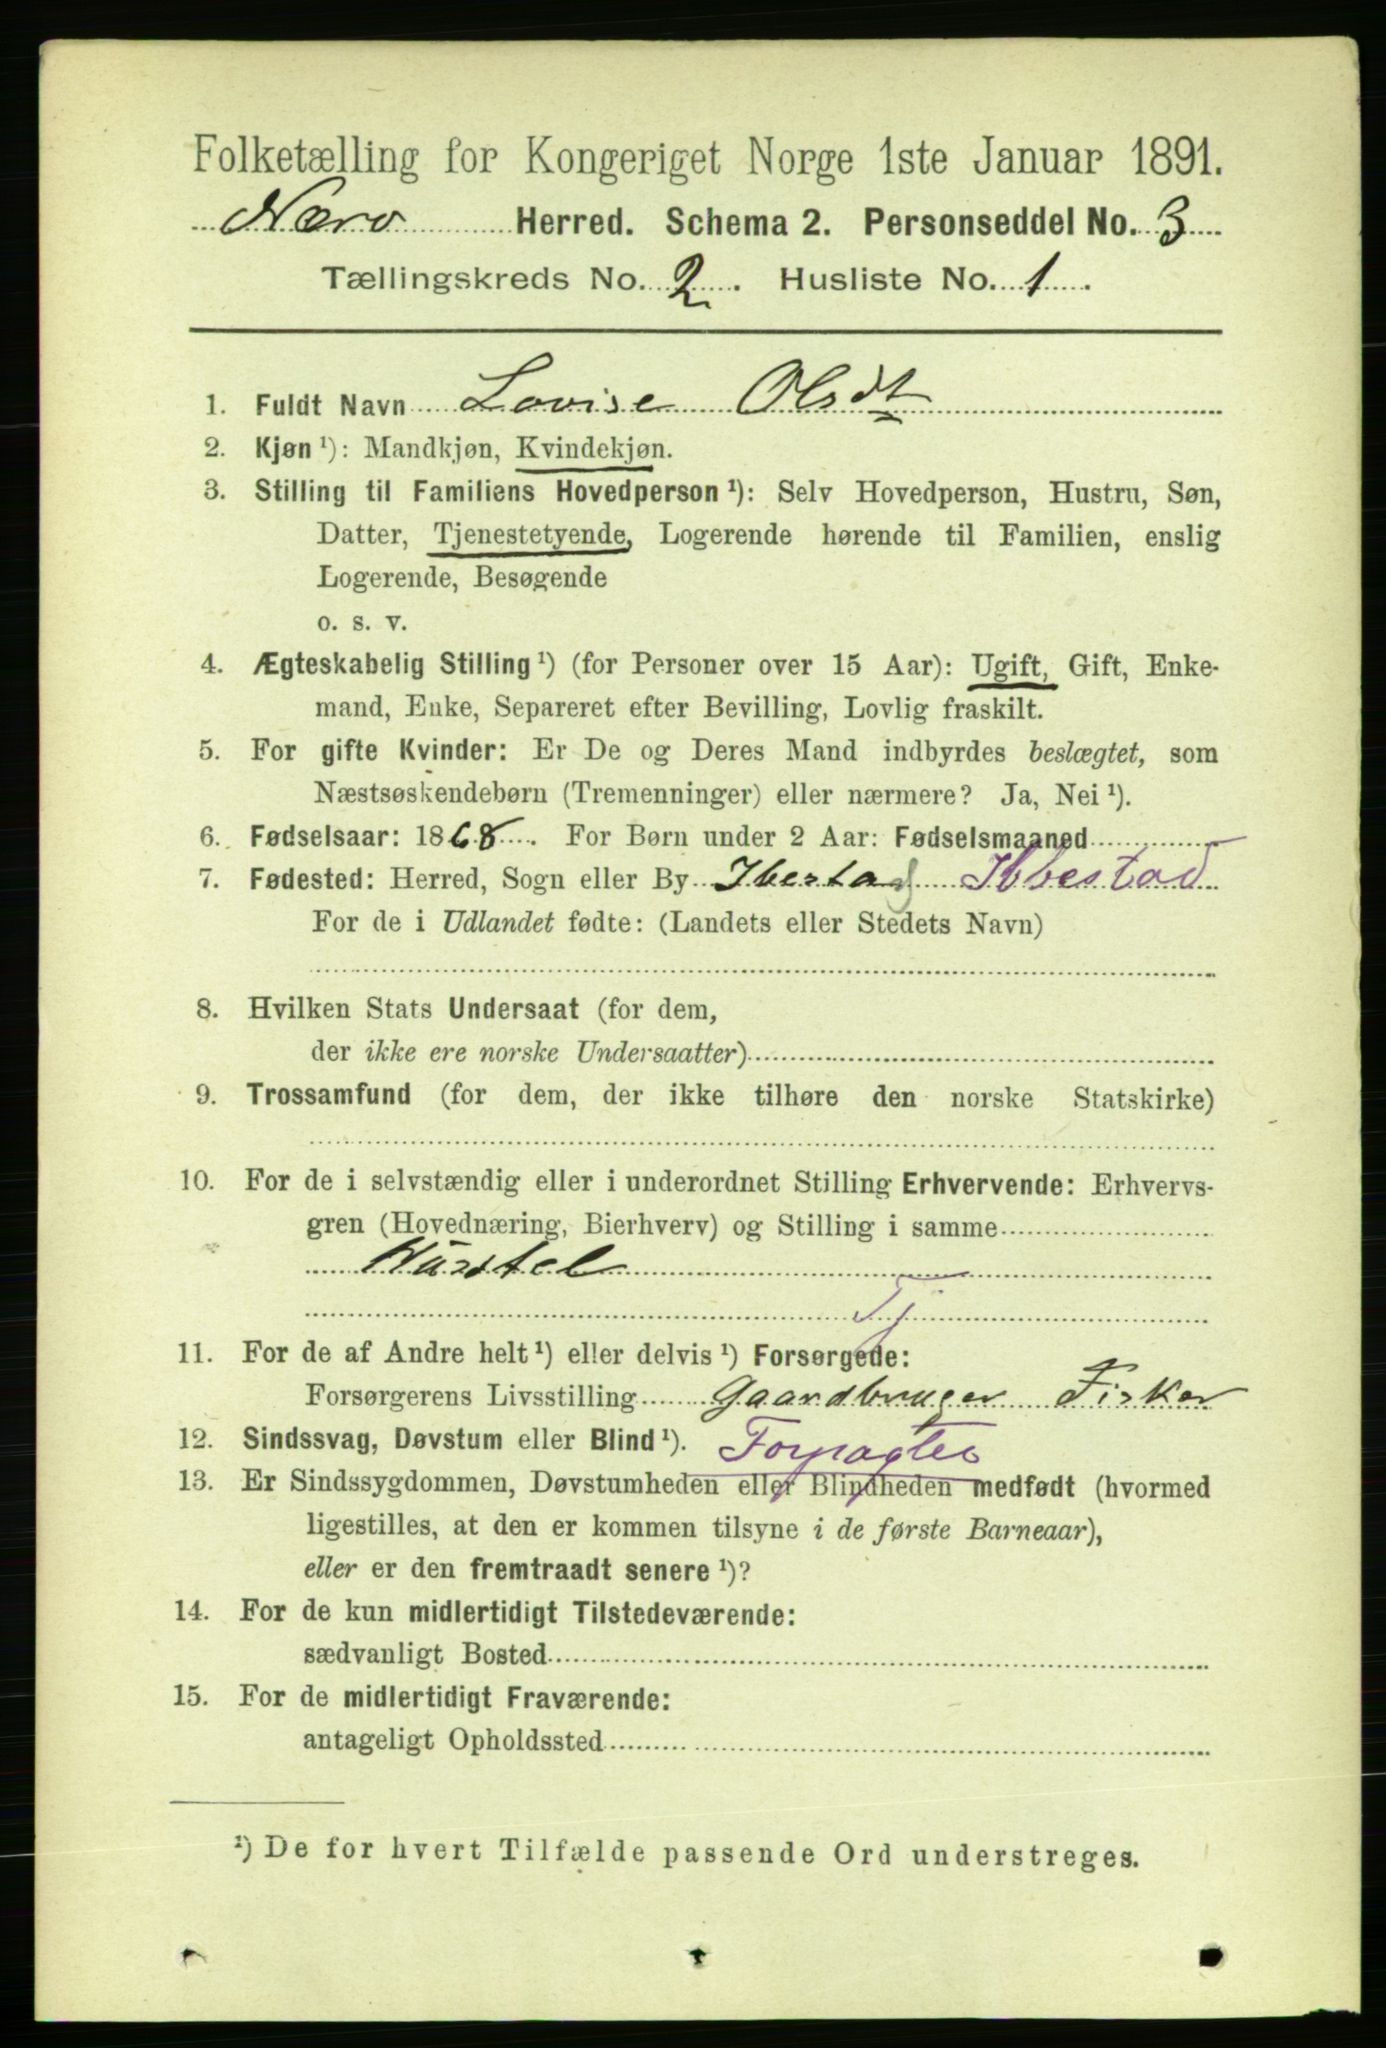 Folketælling for Kongeriget Norge 1ste Januar 1891.
Nærø Herred. Schema 2. Personseddel No. 3
Tællingskreds No. 2. Husliste No. 1.
1. Fuldt Navn Lovise Olsdt
2. Kjøn ¹): Mandkjøn, Kvindekjøn.
3. Stilling til Familiens Hovedperson ¹): Selv Hovedperson, Hustru, Søn,
Datter, Tjenestetyende, Logerende hørende til Familien, enslig
Logerende, Besøgende
o. s. v.
4. Ægteskabelig Stilling ¹) (for Personer over 15 Aar): Ugift, Gift, Enke-
mand, Enke, Separeret efter Bevilling, Lovlig fraskilt.
5. For gifte Kvinder: Er De og Deres Mand indbyrdes beslægtet, som
Næstsøskendebørn (Tremenninger) eller nærmere? Ja, Nei ¹).
6. Fødselsaar: 1868. For Børn under 2 Aar: Fødselsmaaned
7. Fødested: Herred, Sogn eller By Ibestad Ibbestad
For de i Udlandet fødte: (Landets eller Stedets Navn)
8. Hvilken Stats Undersaat (for dem,
der ikke ere norske Undersaatter)
9. Trossamfund (for dem, der ikke tilhøre den norske Statskirke)
10. For de i selvstændig eller i underordnet Stilling Erhvervende: Erhvervs-
gren (Hovednæring, Bierhverv) og Stilling i samme
Husstel
Tj
11. For de af Andre helt ¹) eller delvis ¹) Forsørgede:
Forsørgerens Livsstilling Gaardbruger Fisker
12. Sindssvag, Døvstum eller Blind ¹). Forpagter
13. Er Sindssygdommen, Døvstumheden eller Blindheden medfødt (hvormed
ligestilles, at den er kommen tilsyne i de første Barneaar),
eller er den fremtraadt senere ¹)?
14. For de kun midlertidigt Tilstedeværende:
sædvanligt Bosted
15. For de midlertidigt Fraværende:
antageligt Opholdssted
¹) De for hvert Tilfælde passende Ord understreges.